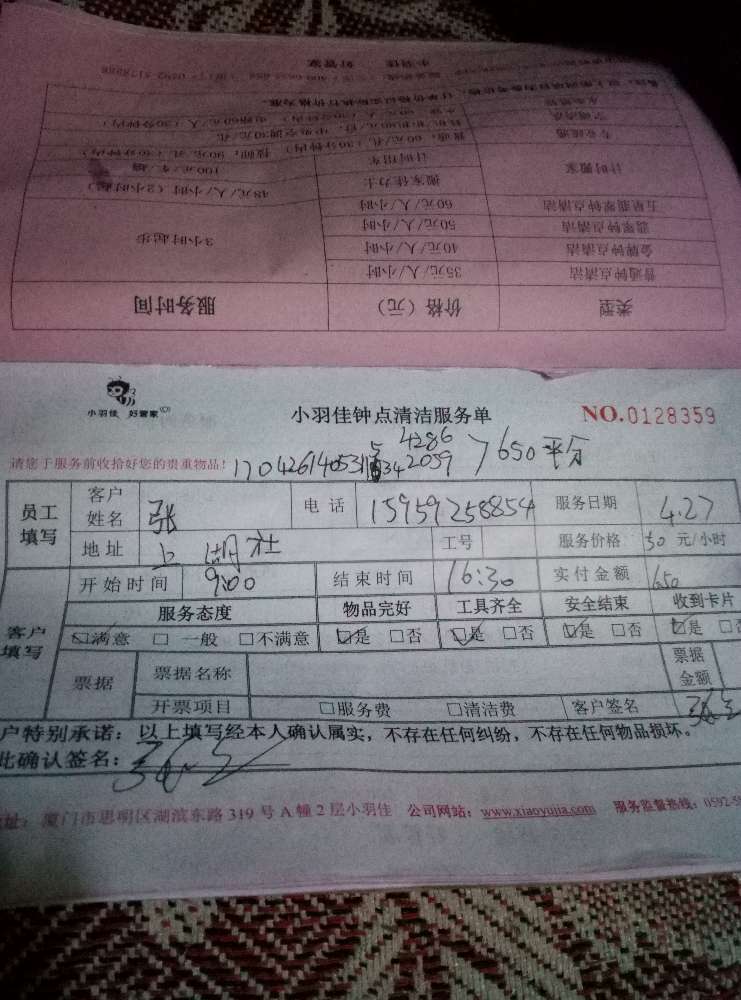 小羽佳 好管家
类型 价格（元） 服务时间
普通钟点清洁 35元/人/小时 3小时起步
金牌钟点清洁 40元/人/小时
翡翠钟点清洁 50元/人/小时
五星翡翠钟点清洁 60元/人/小时
计时搬家 搬家佳力士 48元/人/小时（2小时起）
计时租车 100元/车/趟
小羽佳 好管家
小羽佳钟点清洁服务单 NO.0128359
4286
请您于服务前收拾好您的贵重物品！
2059 7650 平分
员工填写 客户姓名 张 电话 15959258854 服务日期 4.27
地址 上湖社 工号 服务价格 50 元/小时
客户填写 开始时间 9:00 结束时间 16:30 实付金额 650
服务态度 物品完好 工具齐全 安全结束 收到卡片
满意 一般 不满意 是 否 是 否 是 否 是
票据 票据名称 票据金额
开票项目 服务费 清洁费 客户签名
户特别承诺：以上填写经本人确认属实，不存在任何纠纷，不存在任何物品损坏。
此确认签名：
址：厦门市思明区湖滨东路 319 号 A 幢 2 层小羽佳 公司网站：www.xiaoyujia.com 服务监督热线：0592-5